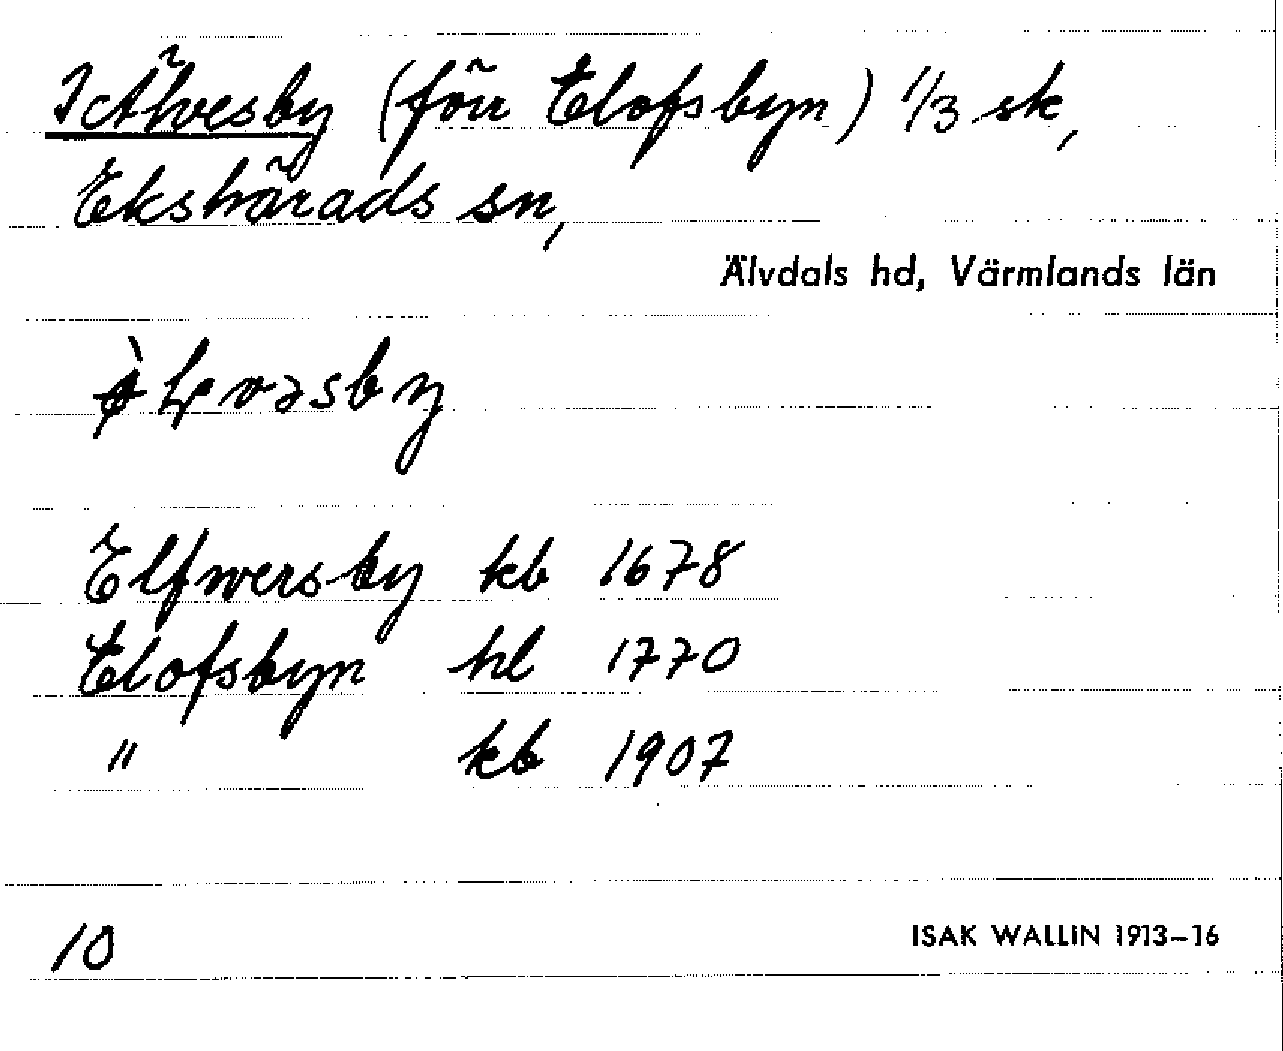 Älvesby (förr Elofsbyn) 1/3 sk,
Ekshärads sn,
Älvdals hd, Värmlands län
Elfwersby kb 1678
Elofsbyn hl 1770
" kb 1907
10
ISAK WALLIN 1913–16